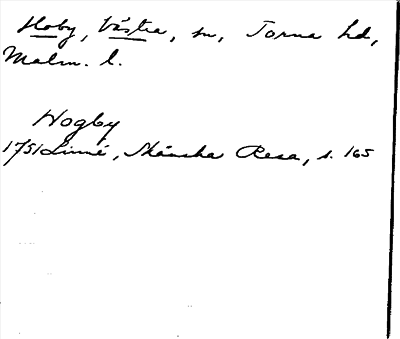 Hoby, Västra, sn, Torna hd,
Malm. l.
Hogby
1751 Linné, Skånska Resa, s. 165